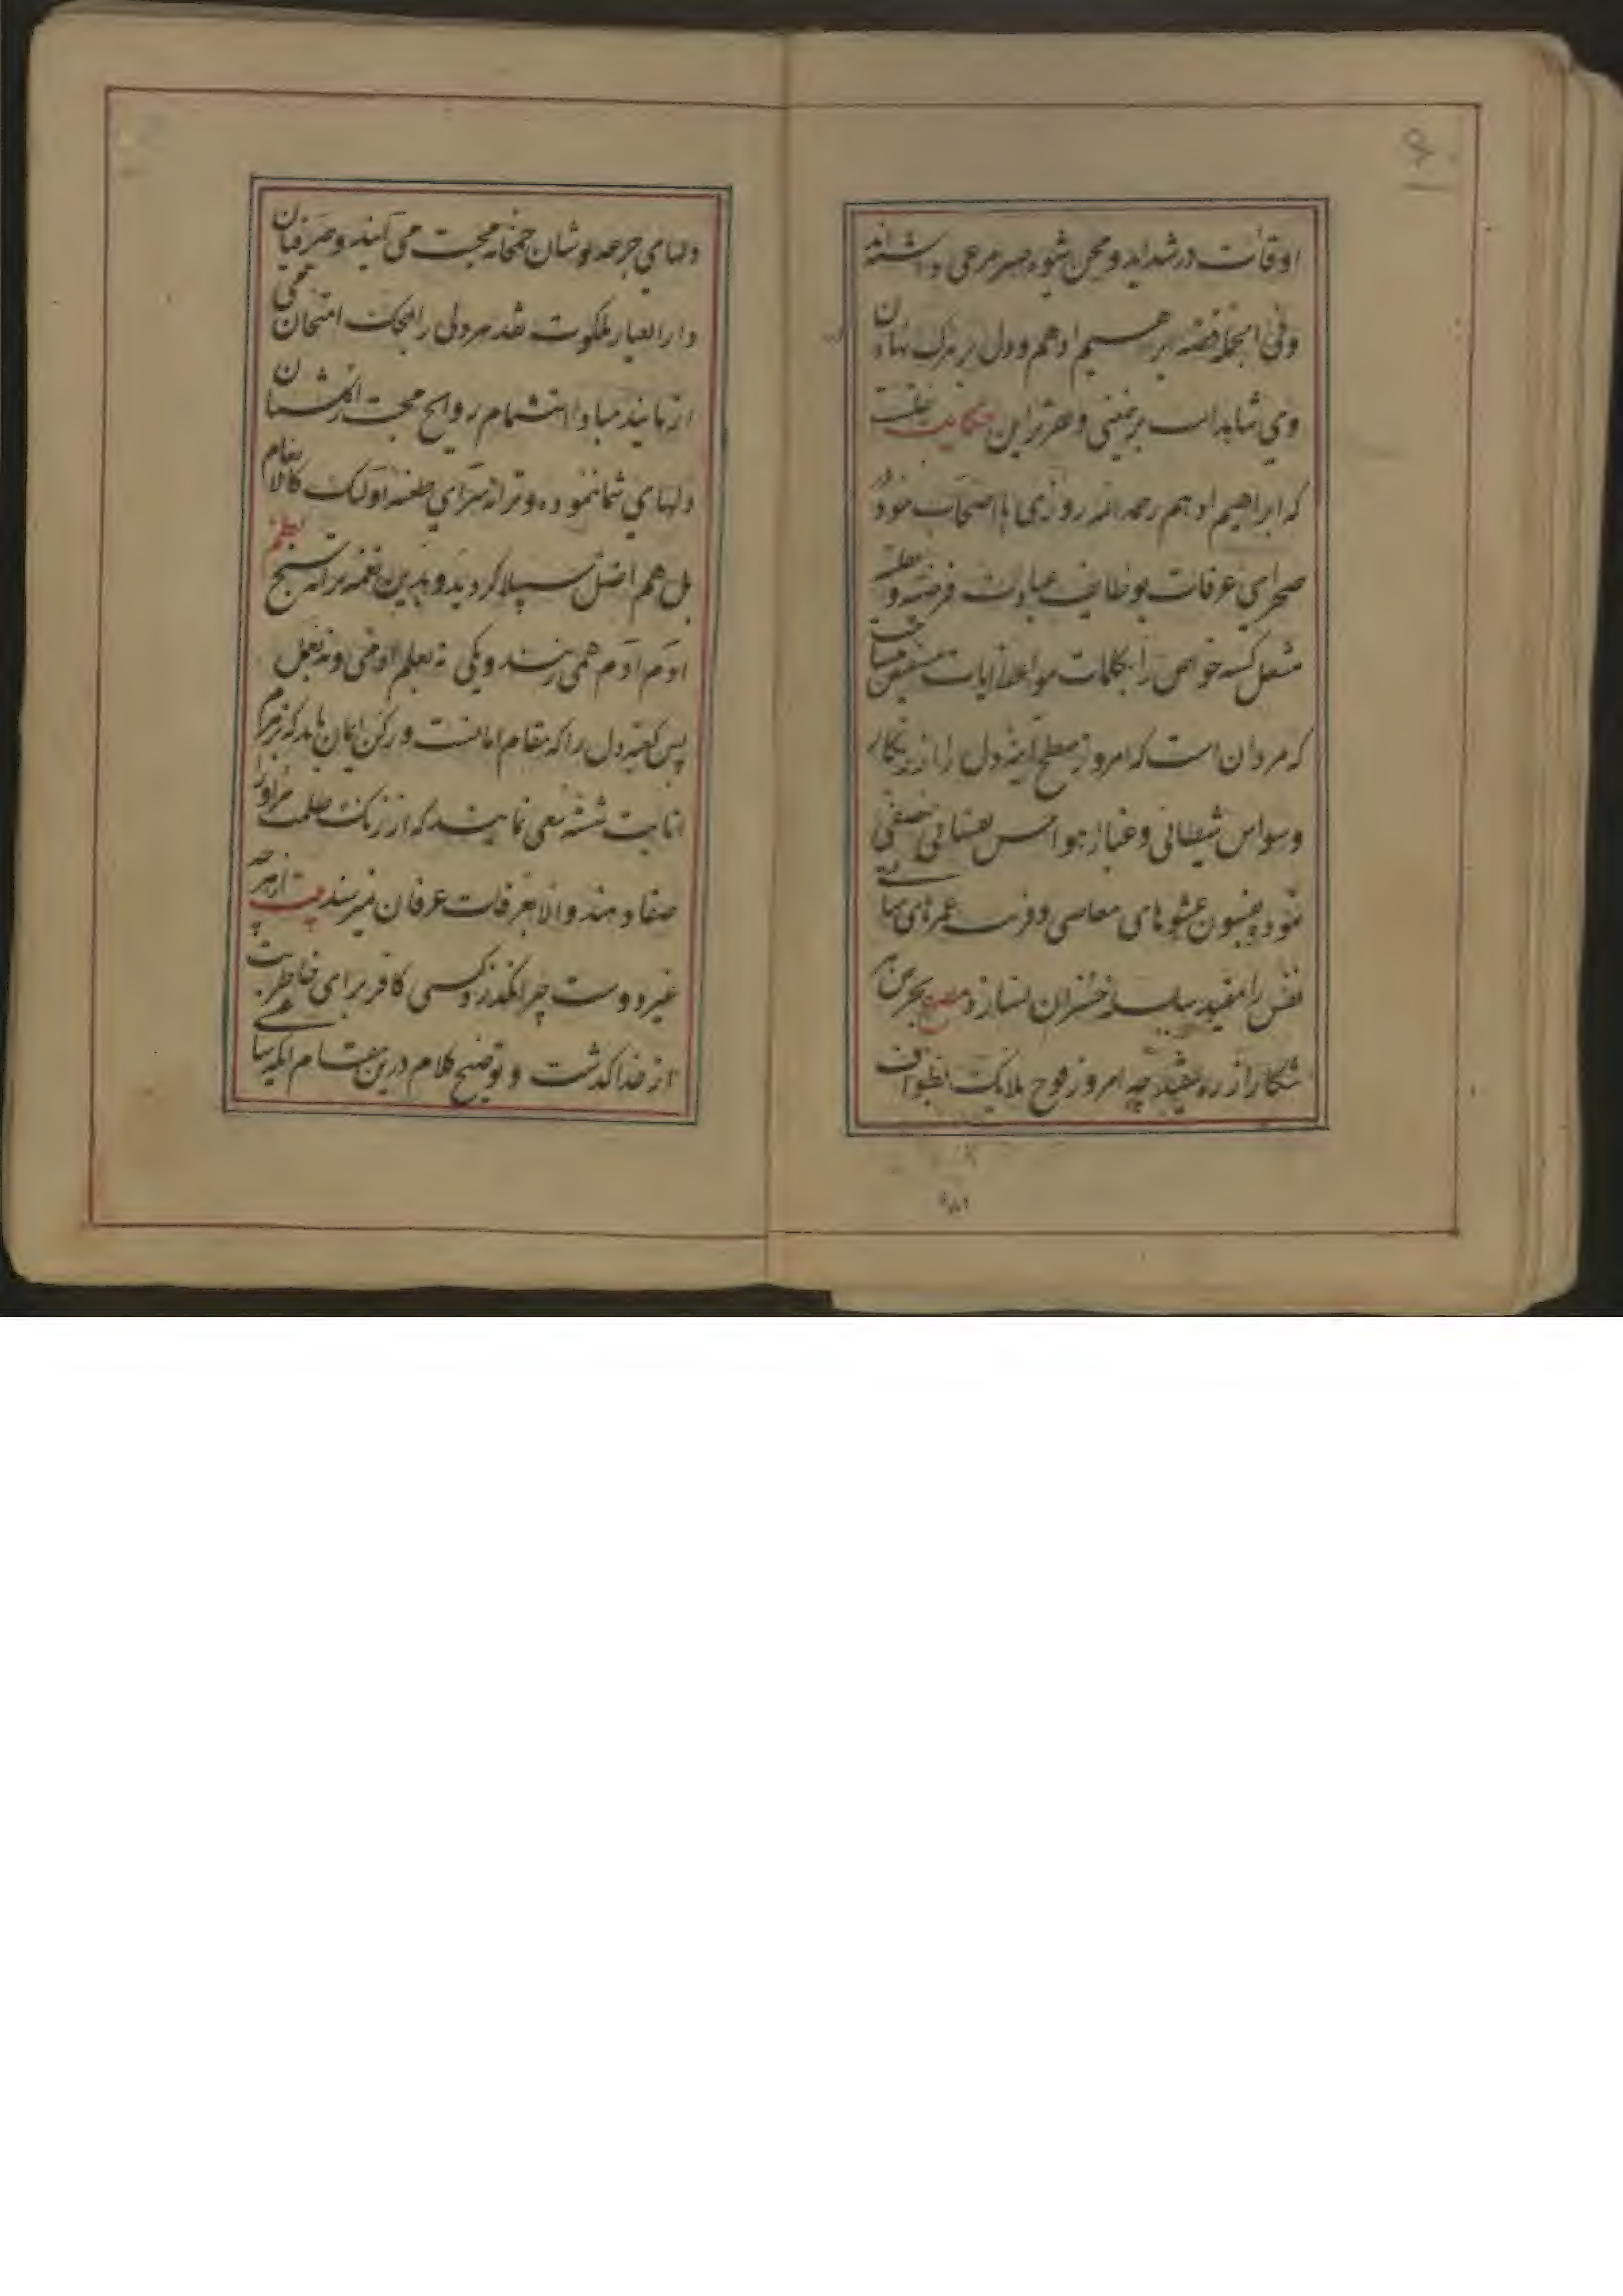 اوقات در شداید و محن شیوه صبر مرعی داشته‌اند
وفی الجمله قصه ابرهیم ادهم و دل بر مرک نهادن
وی شاهد است برمعنی و حکایت
که ابراهیم ادهم رحمه الله روزی با اصحاب خود در
صحرای عرفات بوظایف عبادت فرضه و نفلیه
مشعل کشته خواص را بکلمات مواعظ ایات
که مردان است که امروز سطح اینه دل را از زنکار
وسواس شیطانی و غبار هواجس نفسانی
نمود بفسون عشوهای معاصی و فریب
نفس را مقید سلسله خسران نسازد مصرع بجز من
شکار از ره مقید چه امروز فوج ملایک بطواف
دلهای جرعه نوشان خمخانه محبت می آیند و صرفیان
دار العیار ملکوت نقد هر دلی را بمحک امتحان می
ازمایند مبادا استشمام روایح محبت از کلشن
دلهای شما ننموده و ترانه سرای طعنه اولئک کالانعام
بل هم اضل سبیلا کردید و بدین نغمه ترانه سنج نظم
ادم ادم همی زنند ویکی نه بعلم ادمی و نه بعمل
پس کعبه دل را که مقام امانت و رکن ایمان باید که بزمزم
انابت شسته سعی نمایند که از زنک ظلمت
صفا دهند والا بعرفات عرفان نمیرسند بیت از هر چه
غیر دوست چرا نکذرد کسی کافر برای خاطر بت
از خدا کذشت و توضیح کلام درین مقام انکه